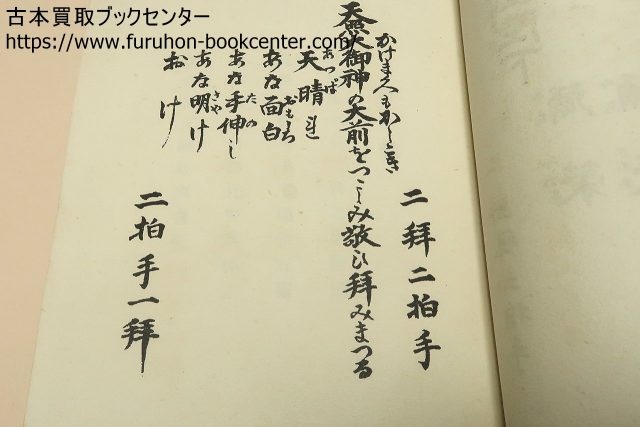 古本買取ブックセンター
https://www.furuhon-bookcenter.com/
二拜二拍手
かけまくもかしこき
天照大御神の大前をつゝしみ敬ひ拜みまつる
あつぱ
天晴れ
おもしろ
あな面白
たの
あな手伸し
さや
あな明け
おけ
二拍手一拜